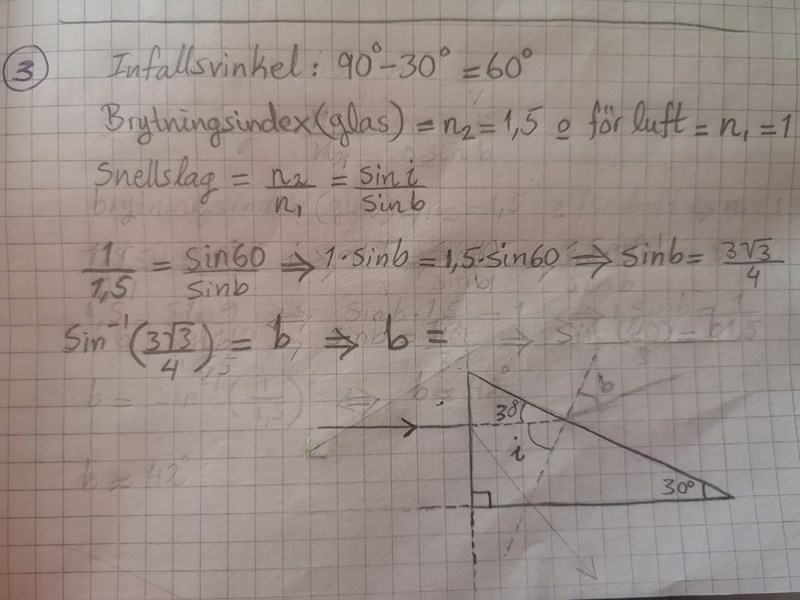 3 Infallsvinkel: 90° - 30° = 60°
Brytningsindex(glas) = n₂ = 1,5 o för luft = n₁ = 1
Snellslag = n₂/n₁ = sin i/sin b
1/1,5 = sin60/sin b ⇒ 1·sin b = 1,5·sin60 ⇒ sin b = 3√3/4
Sin⁻¹(3√3/4) = b ⇒ b =
30° b
i
30°
b = 42°